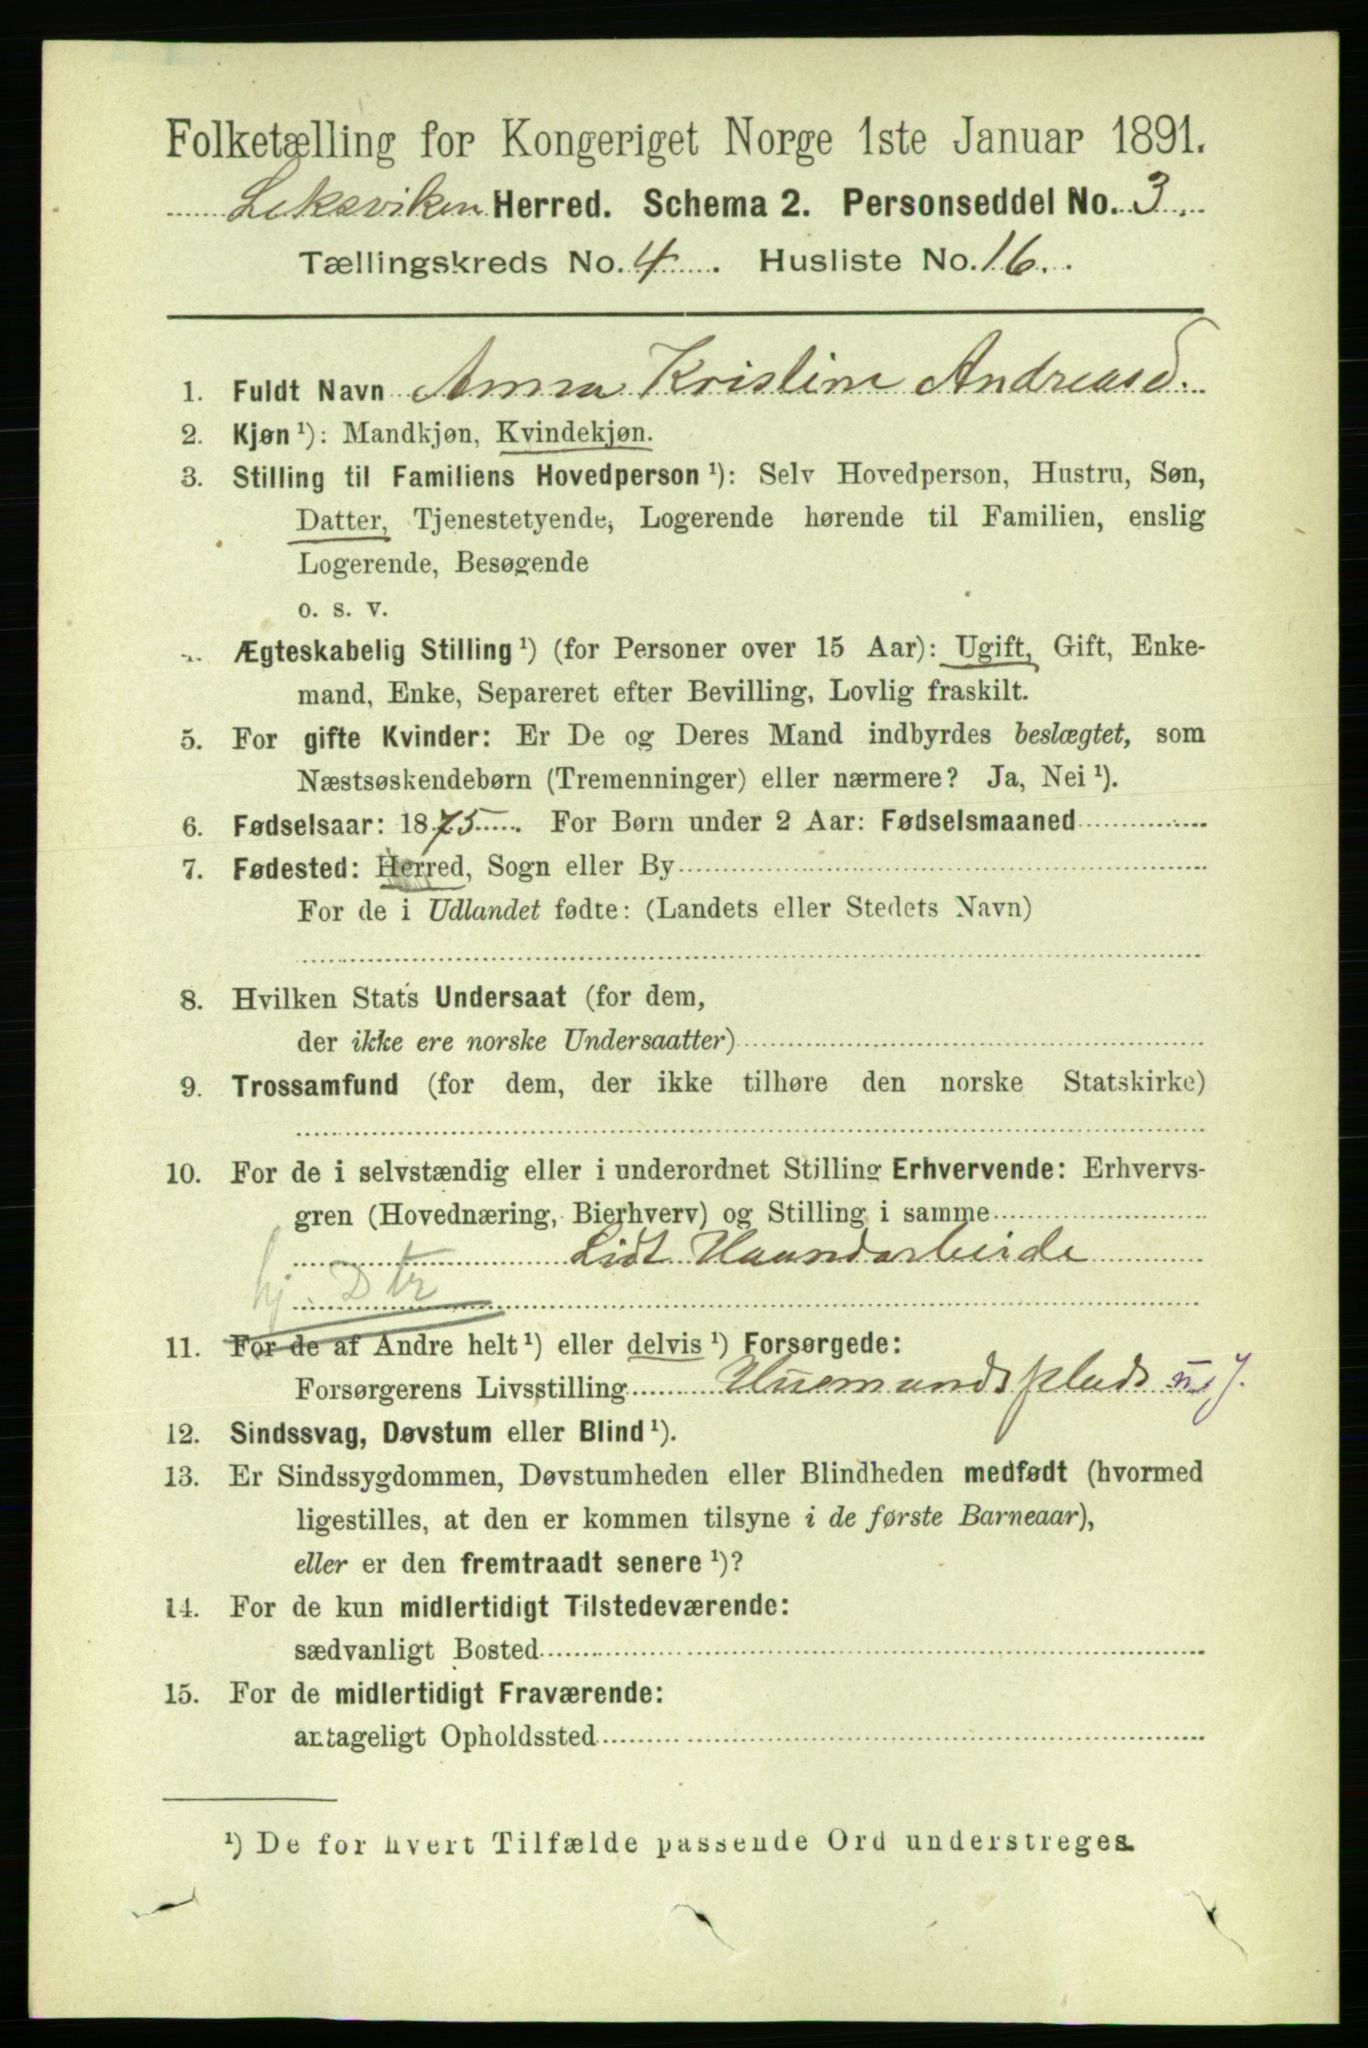 Folketælling for Kongeriget Norge 1ste Januar 1891.
Leksviken Herred. Schema 2. Personseddel No. 3.
Tællingskreds No. 4. Husliste No. 16.
1. Fuldt Navn Anna Kristine Andreasd.
2. Kjøn ¹): Mandkjøn, Kvindekjøn.
3. Stilling til Familiens Hovedperson ¹): Selv Hovedperson, Hustru, Søn,
Datter, Tjenestetyende, Logerende hørende til Familien, enslig
Logerende, Besøgende
o. s. v.
Ægteskabelig Stilling ¹) (for Personer over 15 Aar): Ugift, Gift, Enke-
mand, Enke, Separeret efter Bevilling, Lovlig fraskilt.
5. For gifte Kvinder: Er De og Deres Mand indbyrdes beslægtet, som
Næstsøskendebørn (Tremenninger) eller nærmere? Ja, Nei ¹).
6. Fødselsaar: 1875. For Børn under 2 Aar: Fødselsmaaned
7. Fødested: Herred, Sogn eller By
For de i Udlandet fødte: (Landets eller Stedets Navn)
8. Hvilken Stats Undersaat (for dem,
der ikke ere norske Undersaatter)
9. Trossamfund (for dem, der ikke tilhøre den norske Statskirke)
10. For de i selvstændig eller i underordnet Stilling Erhvervende: Erhvervs-
gren (Hovednæring, Bierhverv) og Stilling i samme
Lidt Haandarbeide
hj. Dtr
11. For de af Andre helt ¹) eller delvis ¹) Forsørgede:
Forsørgerens Livsstilling Husmandsplads
12. Sindssvag, Døvstum eller Blind ¹).
13. Er Sindssygdommen, Døvstumheden eller Blindheden medfødt (hvormed
ligestilles, at den er kommen tilsyne i de første Barneaar),
eller er den fremtraadt senere ¹)?
14. For de kun midlertidigt Tilstedeværende:
sædvanligt Bosted
15. For de midlertidigt Fraværende:
antageligt Opholdssted
¹) De for hvert Tilfælde passende Ord understreges.